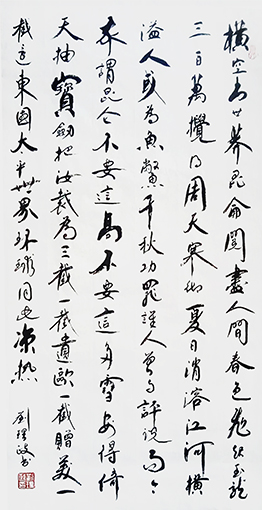 橫空出世莽昆侖閱盡人間春色飛起玉龍
三百萬攪得周天寒徹夏日消溶江河橫
溢人或為魚鱉千秋功罪誰人曾與評說而今
我謂昆侖不要這高不要這多雪安得倚
天抽寶劍把汝裁為三截一截遺歐一截贈美一
截還東國太平世界環球同此涼熱
劉書